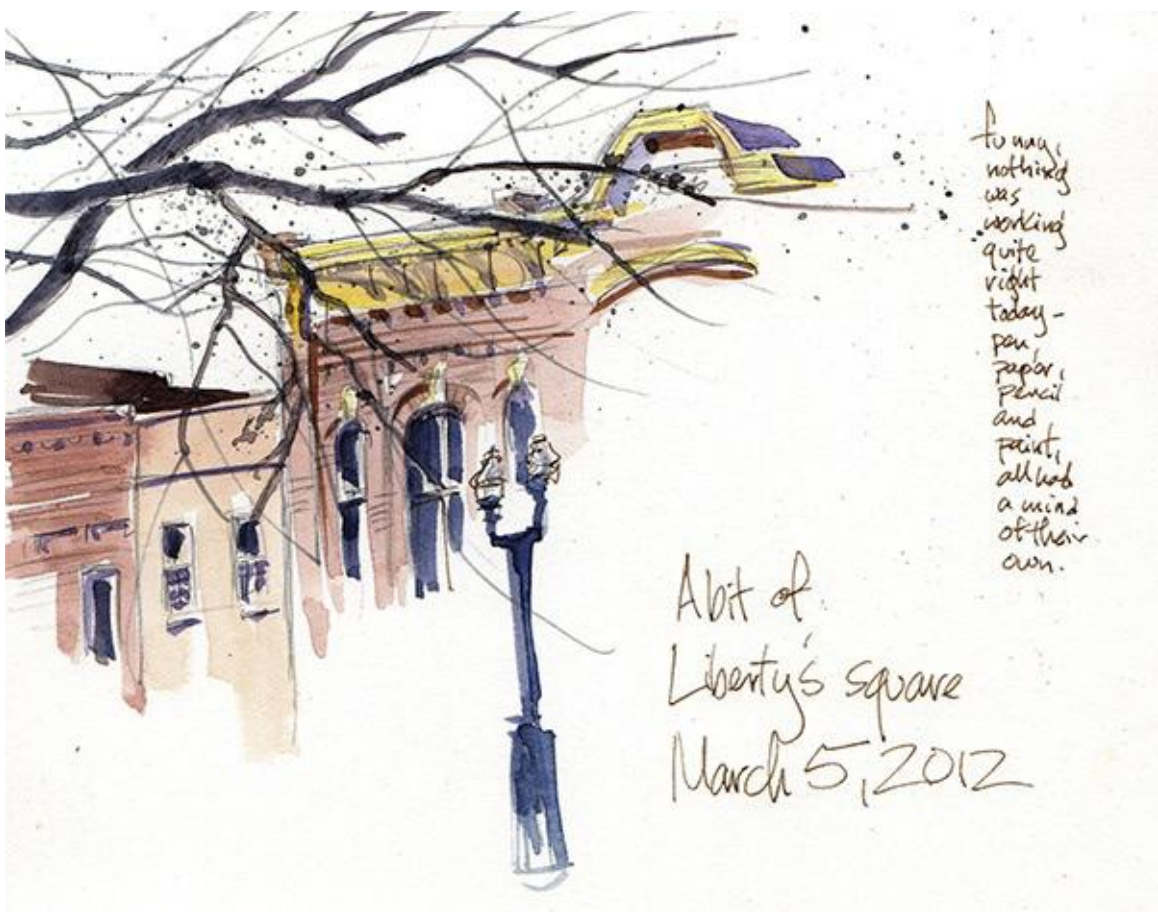 funny,
nothing
was
working
quite
right
today-
pen,
paper,
pencil
and
paint,
all had
a mind
of their
own.
A bit of
Liberty's square
March 5, 2012